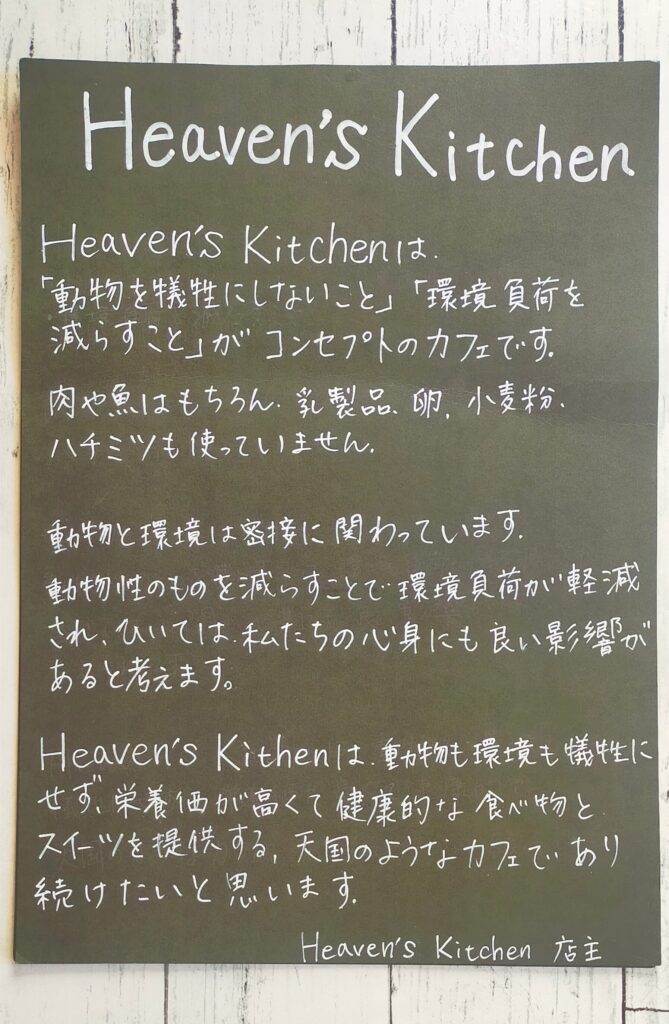 Heaven's Kitchen
Heaven's Kitchenは、
「動物を犠牲にしないこと」「環境負荷を
減らすこと」がコンセプトのカフェです。
肉や魚はもちろん、乳製品、卵、小麦粉、
ハチミツも使っていません。
動物と環境は密接に関わっています。
動物性のものを減らすことで環境負荷が軽減
され、ひいては、私たちの心身にも良い影響が
あると考えます。
Heaven's Kithenは、動物も環境も犠牲に
せず、栄養価が高くて健康的な食べ物と
スイーツを提供する、天国のようなカフェであり
続けたいと思います。
Heaven's Kitchen 店主